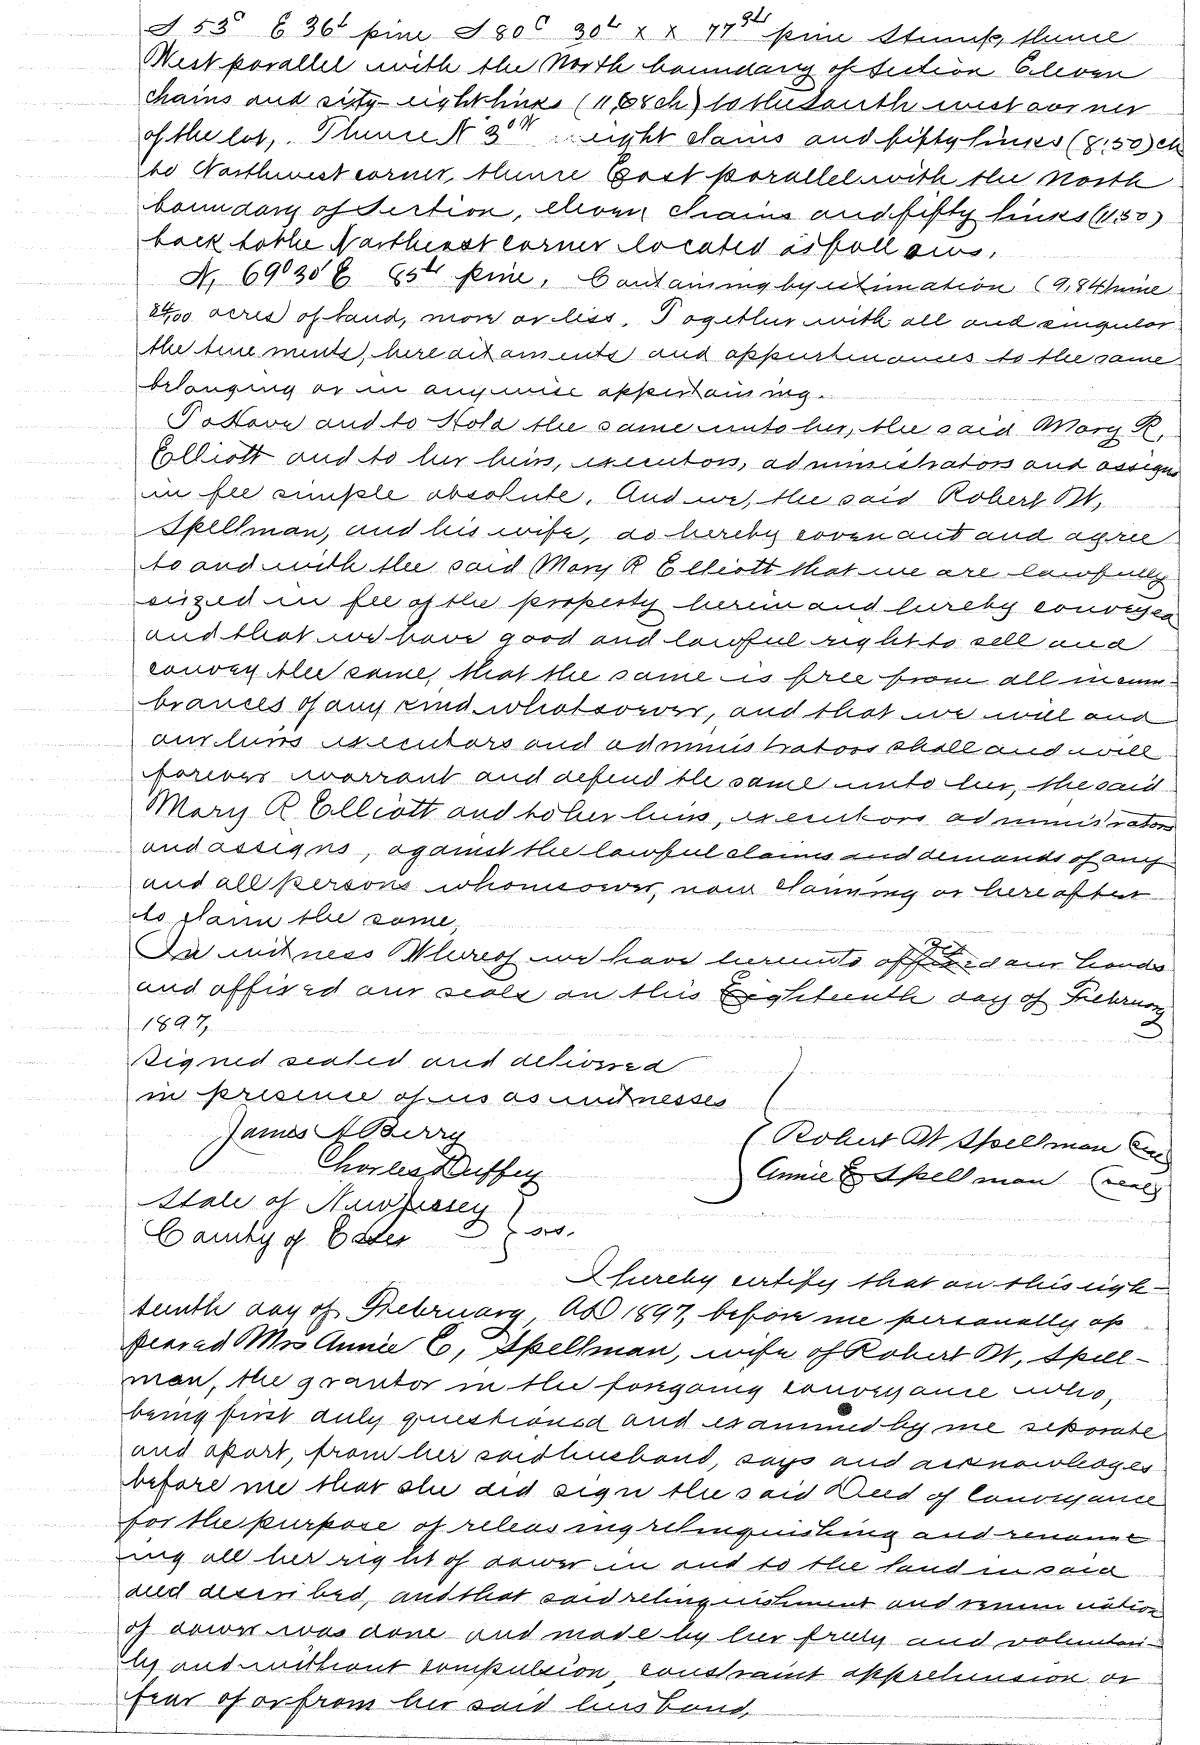 S 53° E 36L pine S 80° 30L x x 77 pine Stump, thence
West parallel with the North boundary of Section Eleven
chains and sixty-eight links (11,68ch) to the South west corner
of the lot, Thence N 3°W eight chains and fifty links (8.50)ch
to Northwest corner, thence East parallel with the North
boundary of Section, eleven chains and fifty links (11.50)
back to the Northeast corner located as follows.
N, 69°30' E 85L pine, Containing by estimation (9,84) nine
84/100 acres) of land, more or less. Together with all and singular
the tenements, hereditaments and appurtenances to the same
belonging or in anywise appertaining.
To Have and to Hold the same unto her, the said Mary R,
Elliott and to her heirs, executors, administrators and assigns
in fee simple absolute. And we, the said Robert W,
Spellman, and his wife, do hereby covenant and agree
to and with the said Mary R Elliott that we are lawfully
seized in fee of the property herein and hereby conveyed
and that we have good and lawful right to sell and
convey the same, that the same is free from all incum-
brances of any kind whatsoever, and that we will and
our heirs executors and administrators shall and will
forever warrant and defend the same unto her, the said
Mary R Elliott and to her heirs, executors administrators
and assigns, against the lawful claims and demands of any
and all persons whomsoever, now claiming or hereafter
to claim the same,
In witness Whereof we have hereunto set our hands
and affixed our seals on this Eighteenth day of February
1897,
Signed sealed and delivered
in presence of us as witnesses
James A Berry
Robert W Spellman (seal)
Charles Duffey
Annie E Spellman (seal)
State of New Jersey
County of Essex } ss.
I hereby certify that on this eigh-
teenth day of February, AD 1897, before me personally ap
peared Mrs Annie E, Spellman, wife of Robert W, Spell-
man, the grantor in the foregoing conveyance who,
being first duly questioned and examined by me separate
and apart, from her said husband, says and acknowledges
before me that she did sign the said Deed of Conveyance
for the purpose of releasing relinquishing and renounc
ing all her right of dower in and to the land in said
deed described, and that said relinquishment and renunciation
of dower was done and made by her freely and voluntari-
ly and without compulsion, constraint apprehension or
fear of or from her said husband,